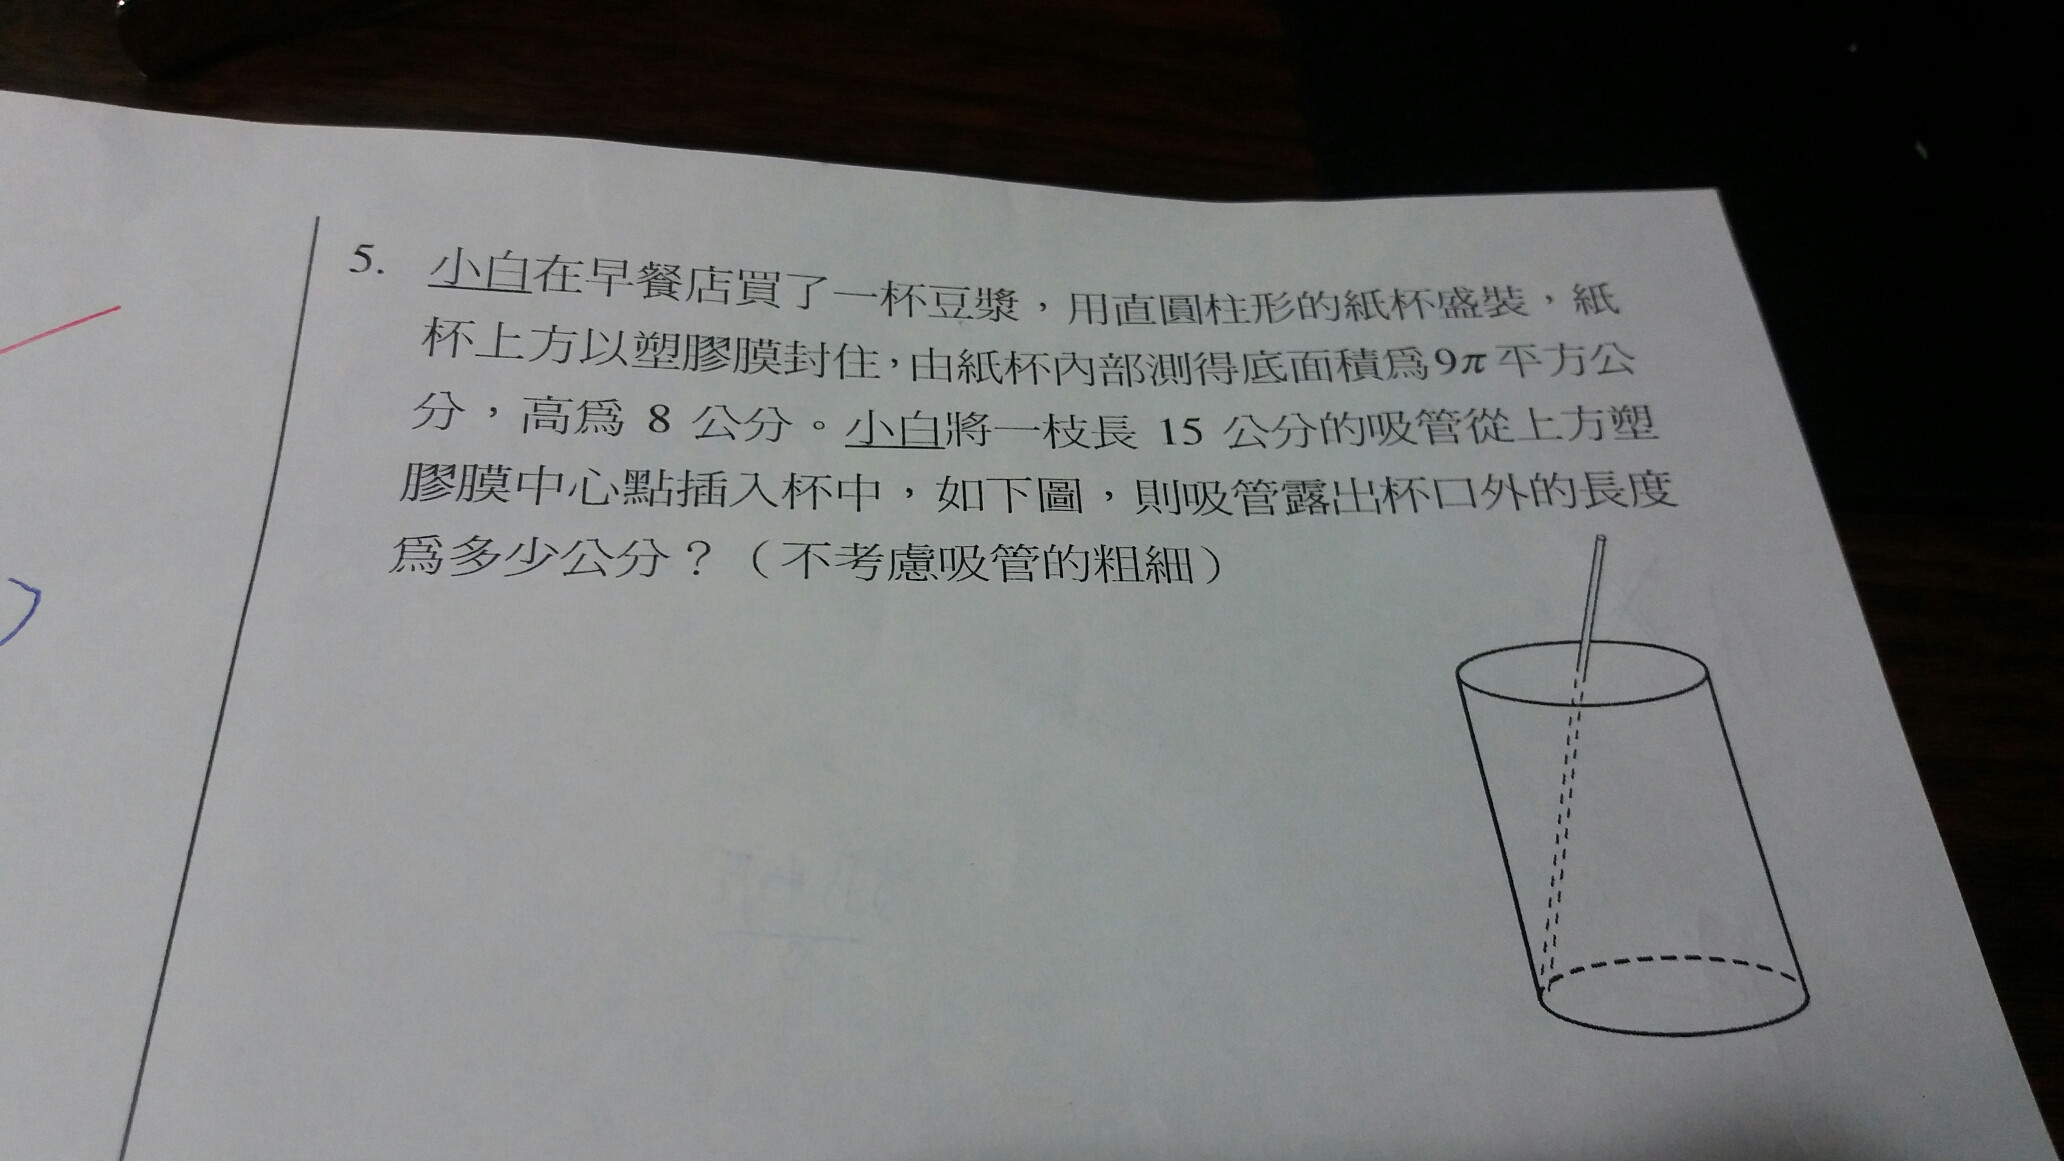 5. 小白在早餐店買了一杯豆漿，用直圓柱形的紙杯盛裝，紙
杯上方以塑膠膜封住，由紙杯內部測得底面積為9π平方公
分，高為 8 公分。小白將一枝長 15 公分的吸管從上方塑
膠膜中心點插入杯中，如下圖，則吸管露出杯口外的長度
為多少公分？（不考慮吸管的粗細）